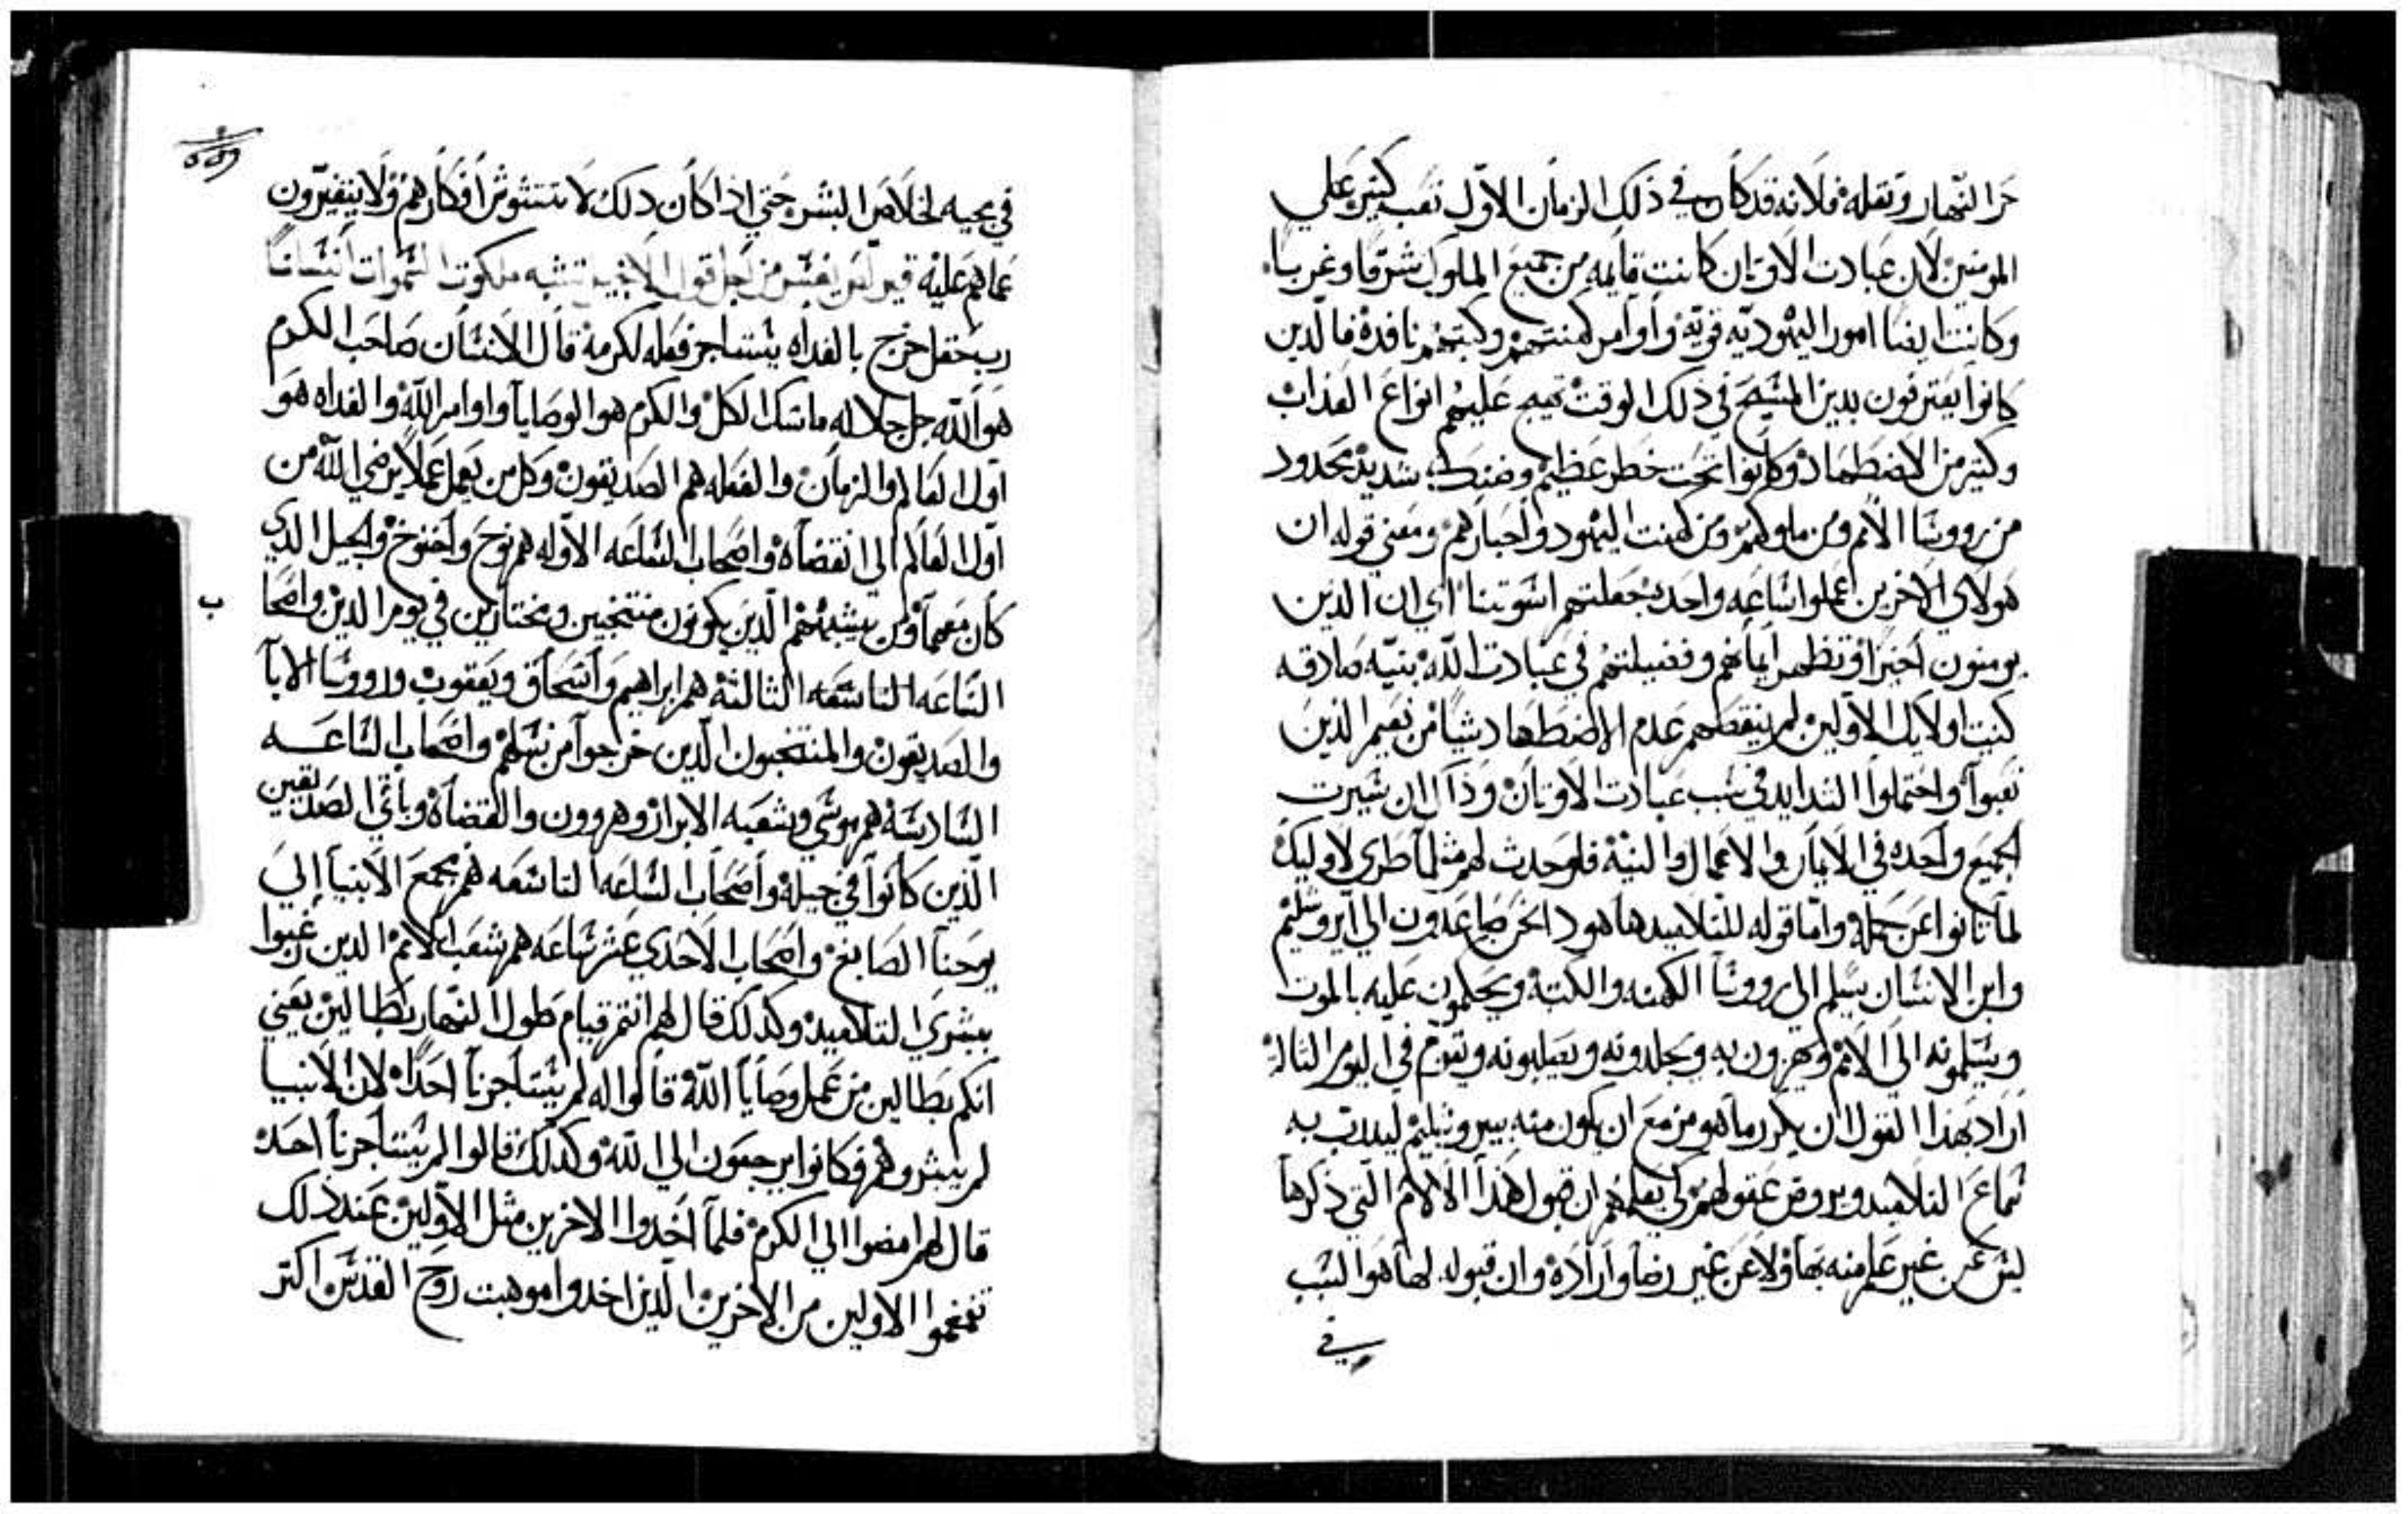 حر النهار وثقله فلانه قد كان في ذلك الزمان الاول تعب كتير علي
المومنين لان عبادت الاوتان كانت قايمه من جميع الملوك شرقا وغربا
وكانت ايضا امور اليهوديه قويه واوامر كهنتهم وكتبتهم نافدة فالدين
كانوا يعترفون بدين المسيح في ذلك الوقت تهيج عليهم انواع العذاب
وكتير من الاضطهاد وكانوا تحت خطر عظيم وضنك شديد محدود
من رووسا الامم ومن ملوكهم ومن كهنت اليهود واحبارهم ومعني قوله ان
هولاي الاخرين عملوا ساعه واحده جعلتهم اسوتنا اي ان الذين
يومنون اخيرا وتظهر ايمانهم وفضيلتهم في عبادت الله بنيه صادقه
كنيت اولايك الاولين لم ينقصهم عدم الاضطهاد شيا من نعيم الذين
تعبوا واحتملوا الشدايد في سبب عبادت الاوتان وذاك ان سيرت
الجميع واحده في الايمان والاعمال والنية فلو حدث لهم مثلما طري لاوليك
لما تانوا عن جمله واما قوله للتلاميد هاهودا نحن صاعدون الي ايروشليم
وابن الانسان يسلم الي رووسا الكهنه والكتبة ويحكمون عليه بالموت
ويسلمونه الي الامم ويهزون به ويجلدونه ويصلبونه ويقوم في اليوم التالت
اراد بهذا القول ان يكرر ما هو مزمع ان يكون منه بيروشليم ليدرب به
سماع التلاميد ويروض عقولهم لكي يعلمهم ان قبول هذا الالام التي ذكرها
ليس عن غير علم منه بها ولا عن غير رضا وارادة وان قبوله لها هو السبب
في
٥٥٩
في مجيه لخلاص البشر حتي اذا كان دلك لا تتشوش افكارهم ولا يتغيرون
عما هم عليه من اجل قول الانجيل تشبه ملكوت السموات انسانا
رب حقل خرج بالغداه يستاجر فعله لكرمه قال الانسان صاحب الكرم
هو الله جل جلاله ماسك الكل والكرم هو الوصايا واوامر الله والغداه هو
اول العالم والزمان والفعله هم الصديقون وكل من يعمل عملا يرضي الله من
اول العالم الي انقضاه واصحاب الساعه الاوله هم نوح واخنوخ والجيل الدي
كان معهما ومن يشبههم الدين يكونون منتخبين ومختارين في يوم الدين واصحا
ب
الساعه التالتة هم ابراهيم واسحاق ويعقوب ورووسا الابا
والصديقون والمنتخبون الدين خرجوا من نسلهم واصحاب الساعـــه
السادسة هم موسي وشعبه الابرار وهرون والقضاة وباقي الصديقين
الدين كانوا في جيله واصحاب الساعه التاسعه هم جمع الانبيا إلي
يوحنا الصابغ واصحاب الاحدي عشر ساعه هم شعب الامم الدين
ببشري التلاميد وكدلك قال لهم انتم قيام طول النهار بطالين يعني
انكم بطالين من عمل وصايا الله قالوا له لم يستاجرنا احدا لان الانبيا
لم يبشروهم فكانوا يرجعون الي الله وكدلك قالوا لم يستاجرنا احد
قال لهم امضوا الي الكرم فلما اخدوا الاخرين مثل الاولين عند ذلك
تقمقموا الاولين من الاخرين الدين اخدوا موهبت روح القدس اكتر